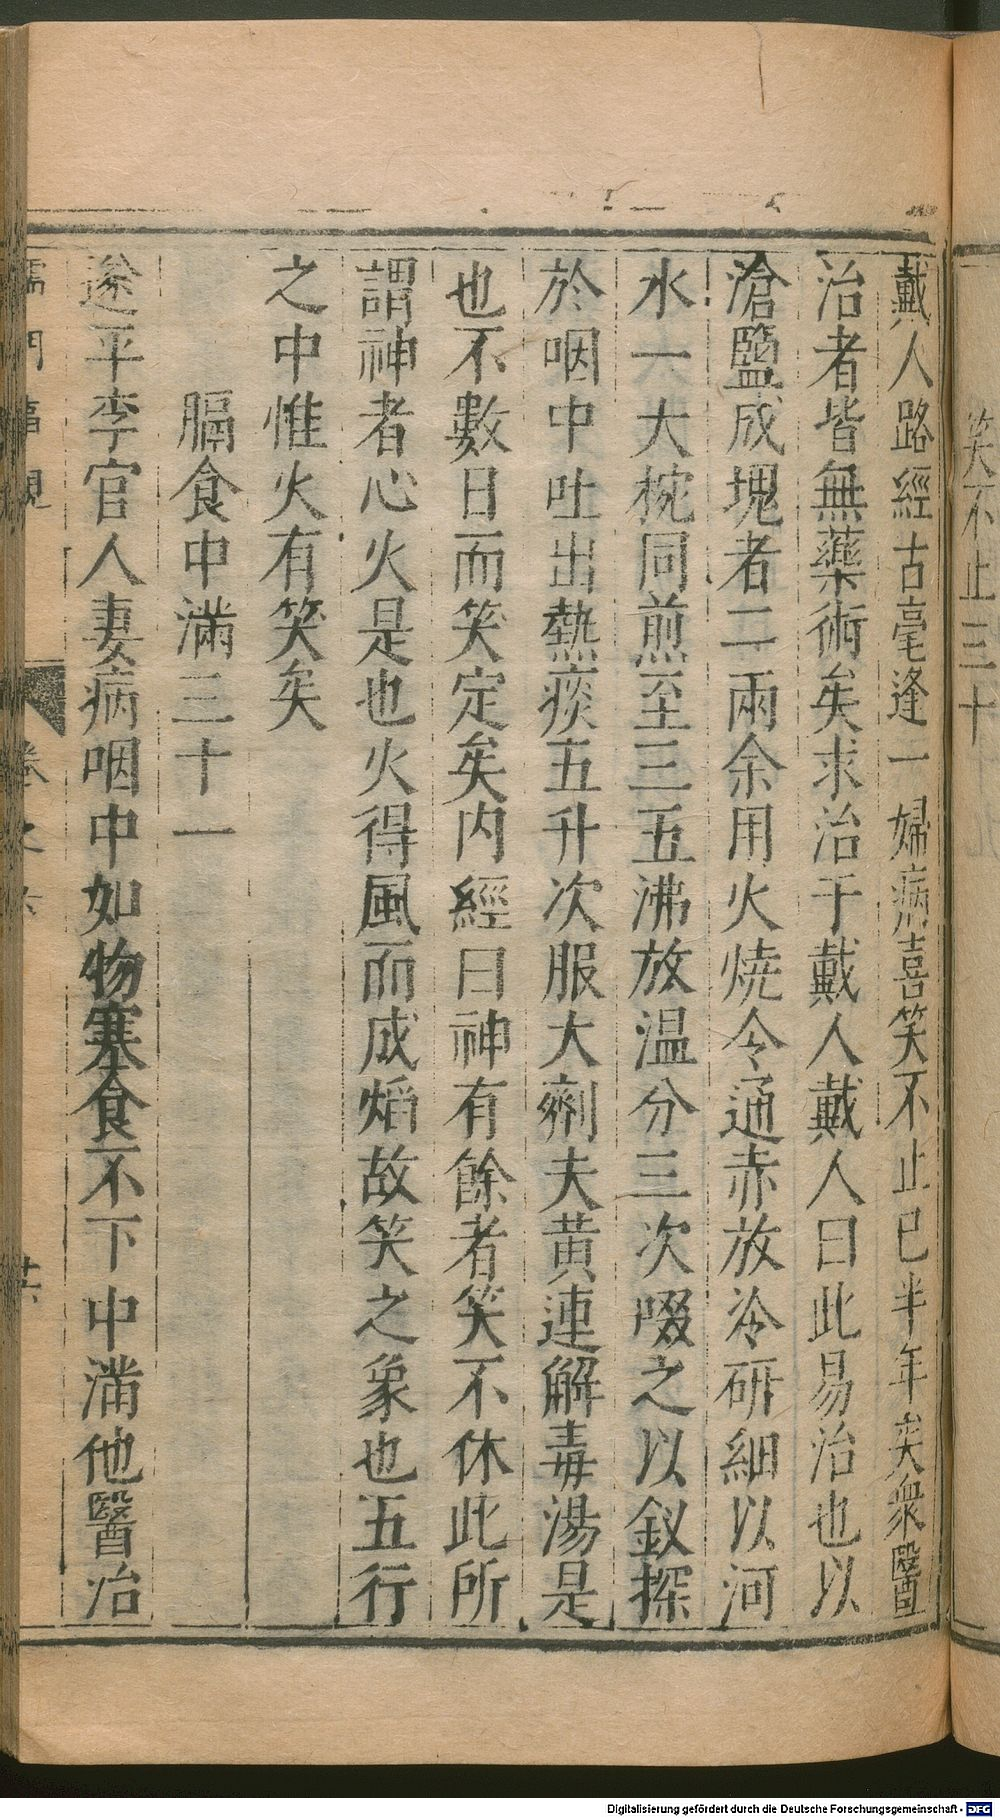 笑不止三十
戴人路經古亳逢一婦病喜笑不止已半年矣衆醫
治者皆無藥術矣求治于戴人戴人曰此易治也以
滄鹽成塊者二兩余用火燒令通赤放冷研細以河
水一大椀同煎至三五沸放温分三次啜之以釵探
於咽中吐出熱痰五升次服大劑夫黄連解毒湯是
也不數日而笑定矣内經曰神有餘者笑不休此所
謂神者心火是也火得風而成焰故笑之象也五行
之中惟火有笑矣
膈食中滿三十一
遂平李官人妻病咽中如物塞食不下中滿他醫治
儒門事親
卷之六
廿六
Digitalisierung gefördert durch die Deutsche Forschungsgemeinschaft - DFG